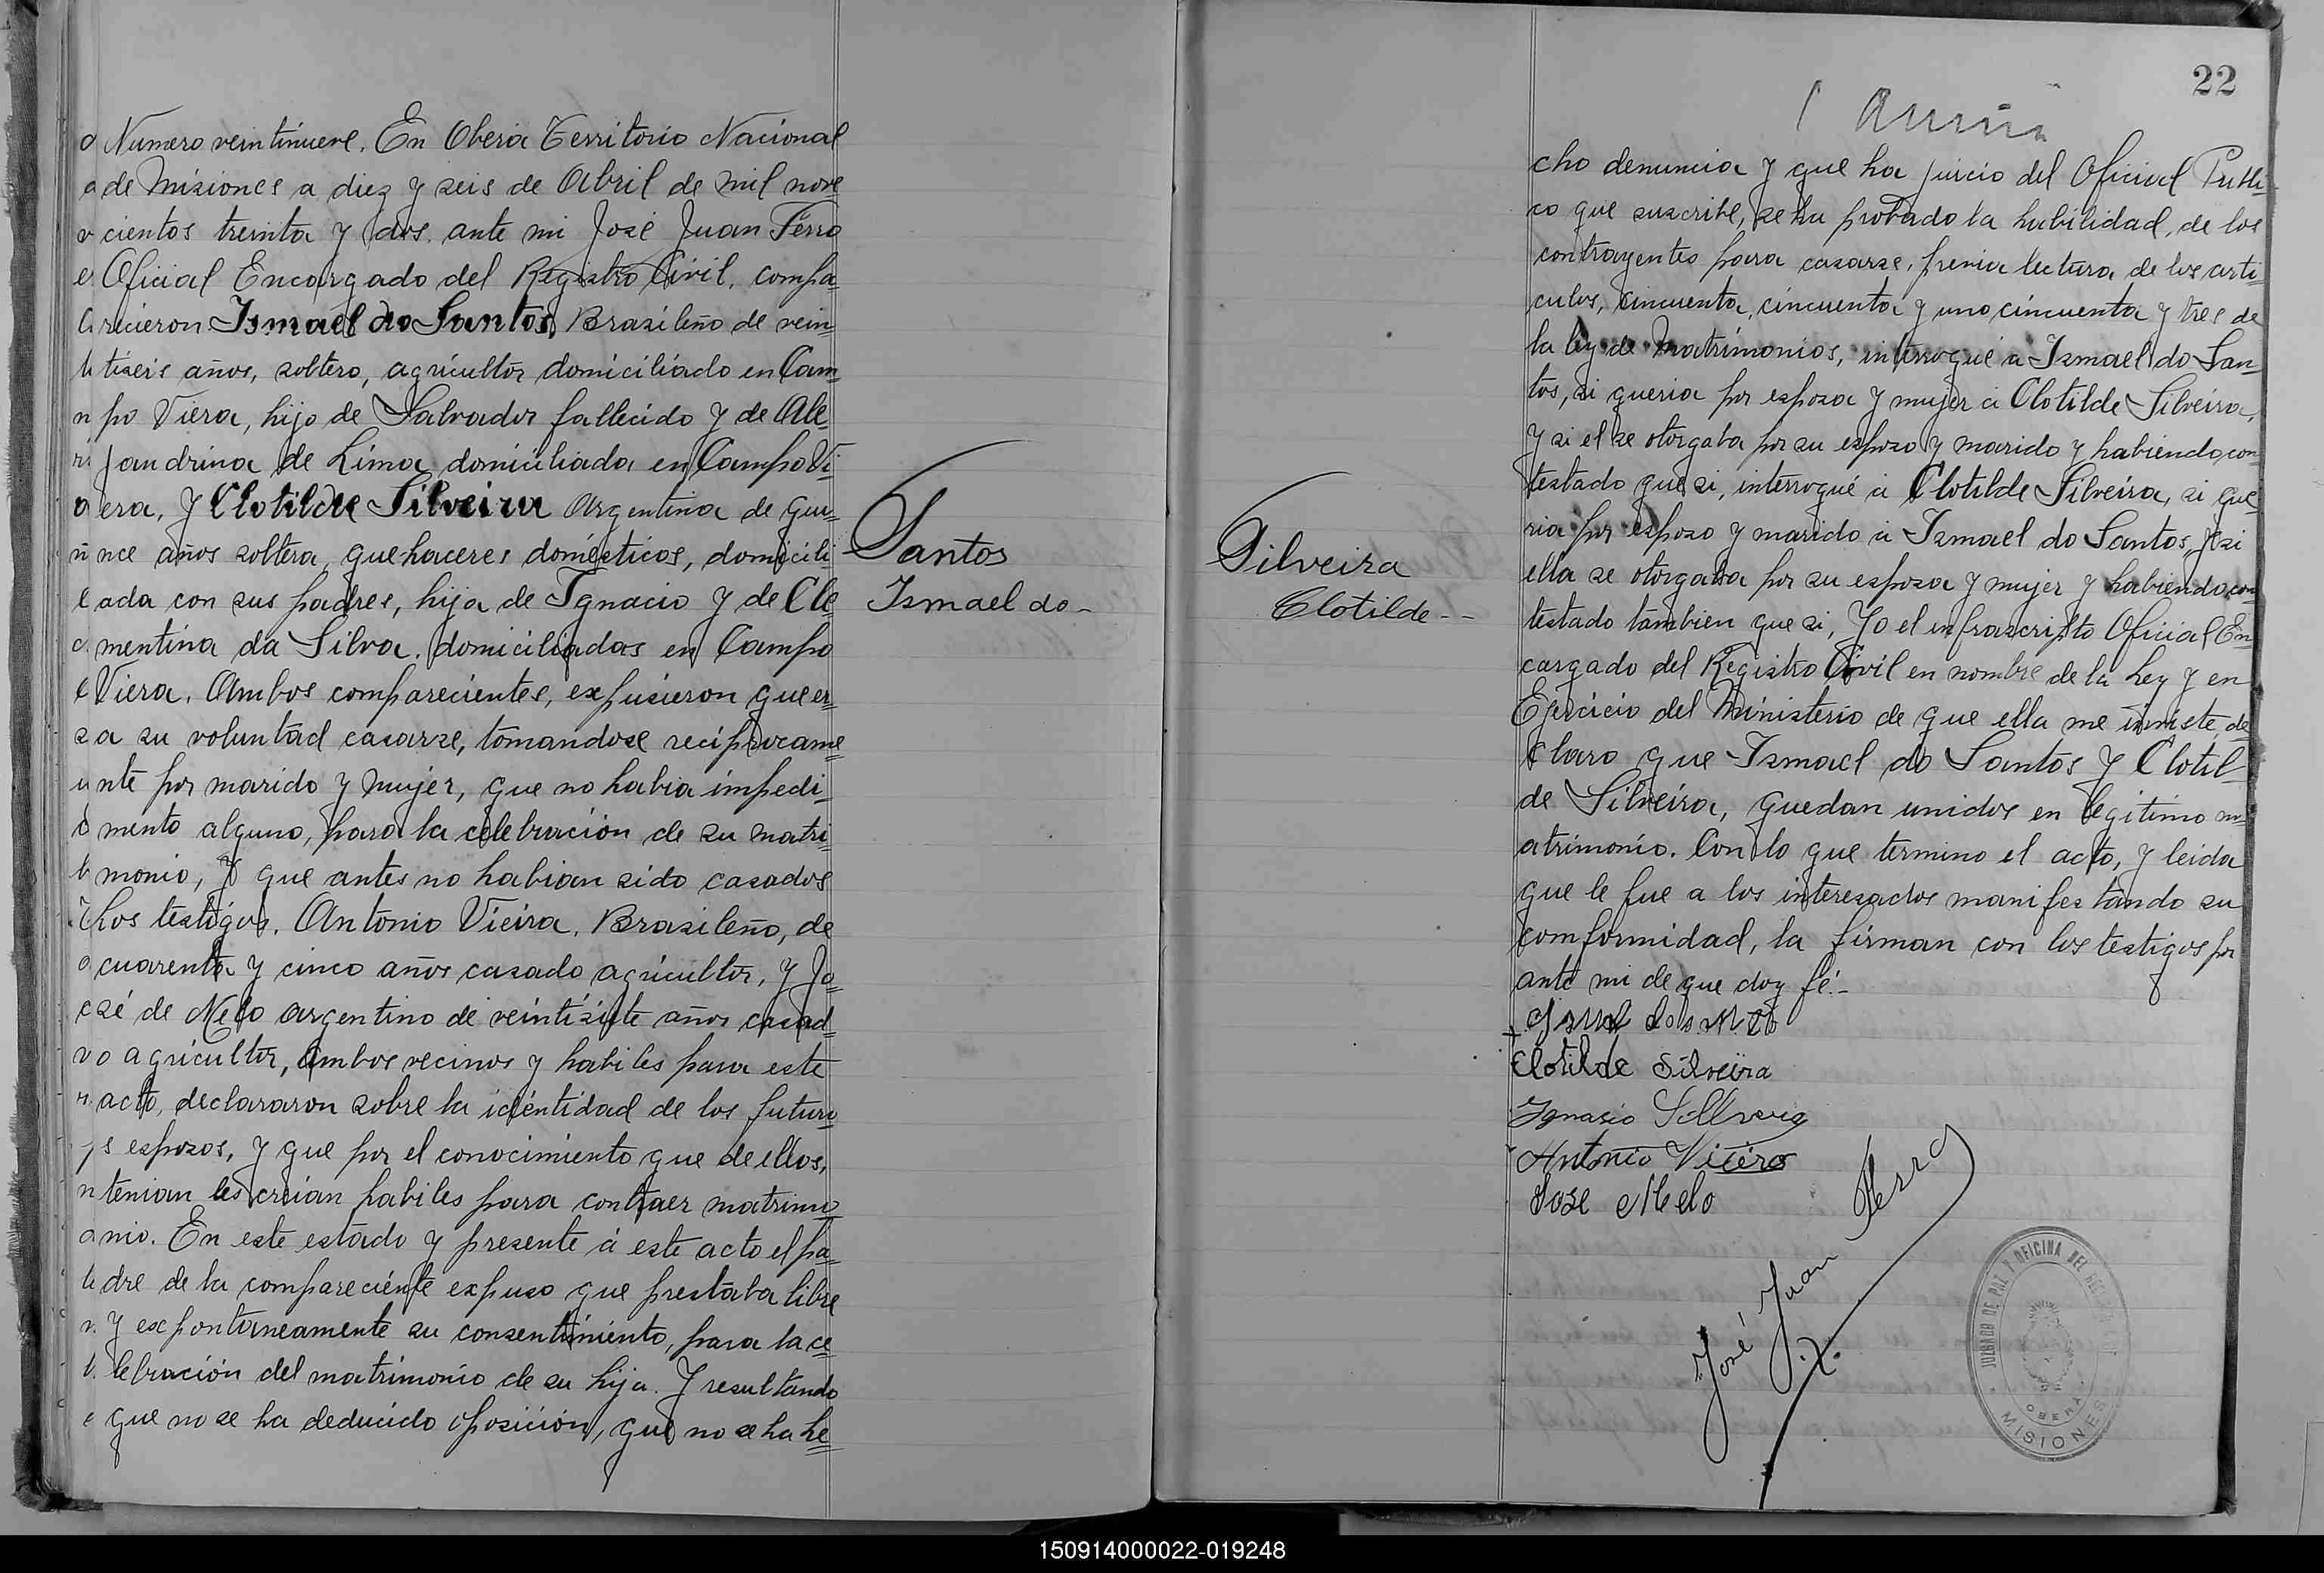 Numero veintinueve. En Oberá Territorio Nacional
de Misiones a diez y seis de Abril de mil nove
cientos treinta y dos. ante mi José Juan Ferro
Oficial Encargado del Registro Civil, compa-
recieron Ismael do Santos, Brasileño de vein-
tiseis años, soltero, agricultor domiciliado en Cam-
po Viera, hijo de Salvador fallecido y de Ale-
jandrina de Lima domiciliada en Campo Vi-
era, y Clotilde Silveira Argentina de qui-
nce años soltera, quehaceres domésticos, domicili-
ada con sus padres, hija de Ignacio y de Cle
mentina da Silva. domiciliados en Campo
Viera. Ambos comparecientes, expusieron que er-
a su voluntad casarse, tomandose reciprocame
nte por marido y mujer, que no habia impedi-
mento alguno, para la celebración de su matri-
monio, y que antes no habian sido casados
Los testigos. Antonio Vieira. Brasileño, de
cuarenta y cinco años casado agricultor, y Jo-
sé de Melo argentino de veintisiete años casad-
o agricultor, ambos vecinos y habiles para este
acto, declararon sobre la identidad de los futuro
s esposos, y que por el conocimiento que de ellos,
tenian les creian habiles para contraer matrimo-
nio. En este estado y presente á este acto el pa-
dre de la compareciente expuso que prestaba libre
y expontaneamente su consentimiento, para la ce-
lebración del matrimonio de su hija. Y resultando
que no se ha deducido oposición, que no se ha he-
Santos
Ismael do -
22
Silveira
Clotilde - -
cho denuncia y que ha juicio del Oficial Publi-
co que suscribe, se ha probado la habilidad, de los
contrayentes para casarse, previa lectura de los arti-
culos, cincuenta, cincuenta y uno cincuenta y tres de
la ley de Matrimonios, interrogué a Ismael do San-
tos, si queria por esposa y mujer á Clotilde Silveira,
y si el se otorgaba por su esposo y marido y habiendo con-
testado que si, interrogué á Clotilde Silveira, si que
ria por esposo y marido á Ismael do Santos, y si
ella se otorgaba por su esposa y mujer y habiendo con-
testado tambien que si, Yo el infrascripto Oficial En-
cargado del Registro Civil en nombre de la Ley y en
Ejercicio del Ministerio de que ella me inviste, de-
claro que Ismael do Santos y Clotil-
de Silveira, quedan unidos en legitimo m-
atrimonio. Con lo que termino el acto, y leida
que le fue a los interesados manifestando su
conformidad, la firman con los testigos por
ante mi de que doy fé.-
Clotilde Silveira
Ignasio
Antonio Vieira
José Melo
José Juan Ferro
JUZGADO DE PAZ Y OFICINA DEL
OBERA
MISIONES
150914000022-019248